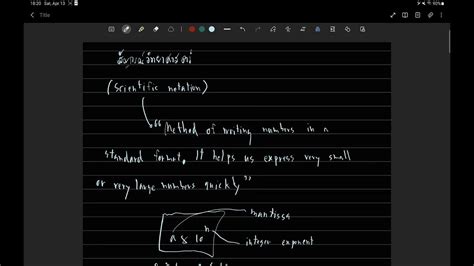 18:20 Sat, Apr 13
90%
Title
(scientific notation)
"Method of writing numbers in a
standard format. It helps us express very small
or very large numbers quickly"
mantissa
a x 10ⁿ
integer exponent